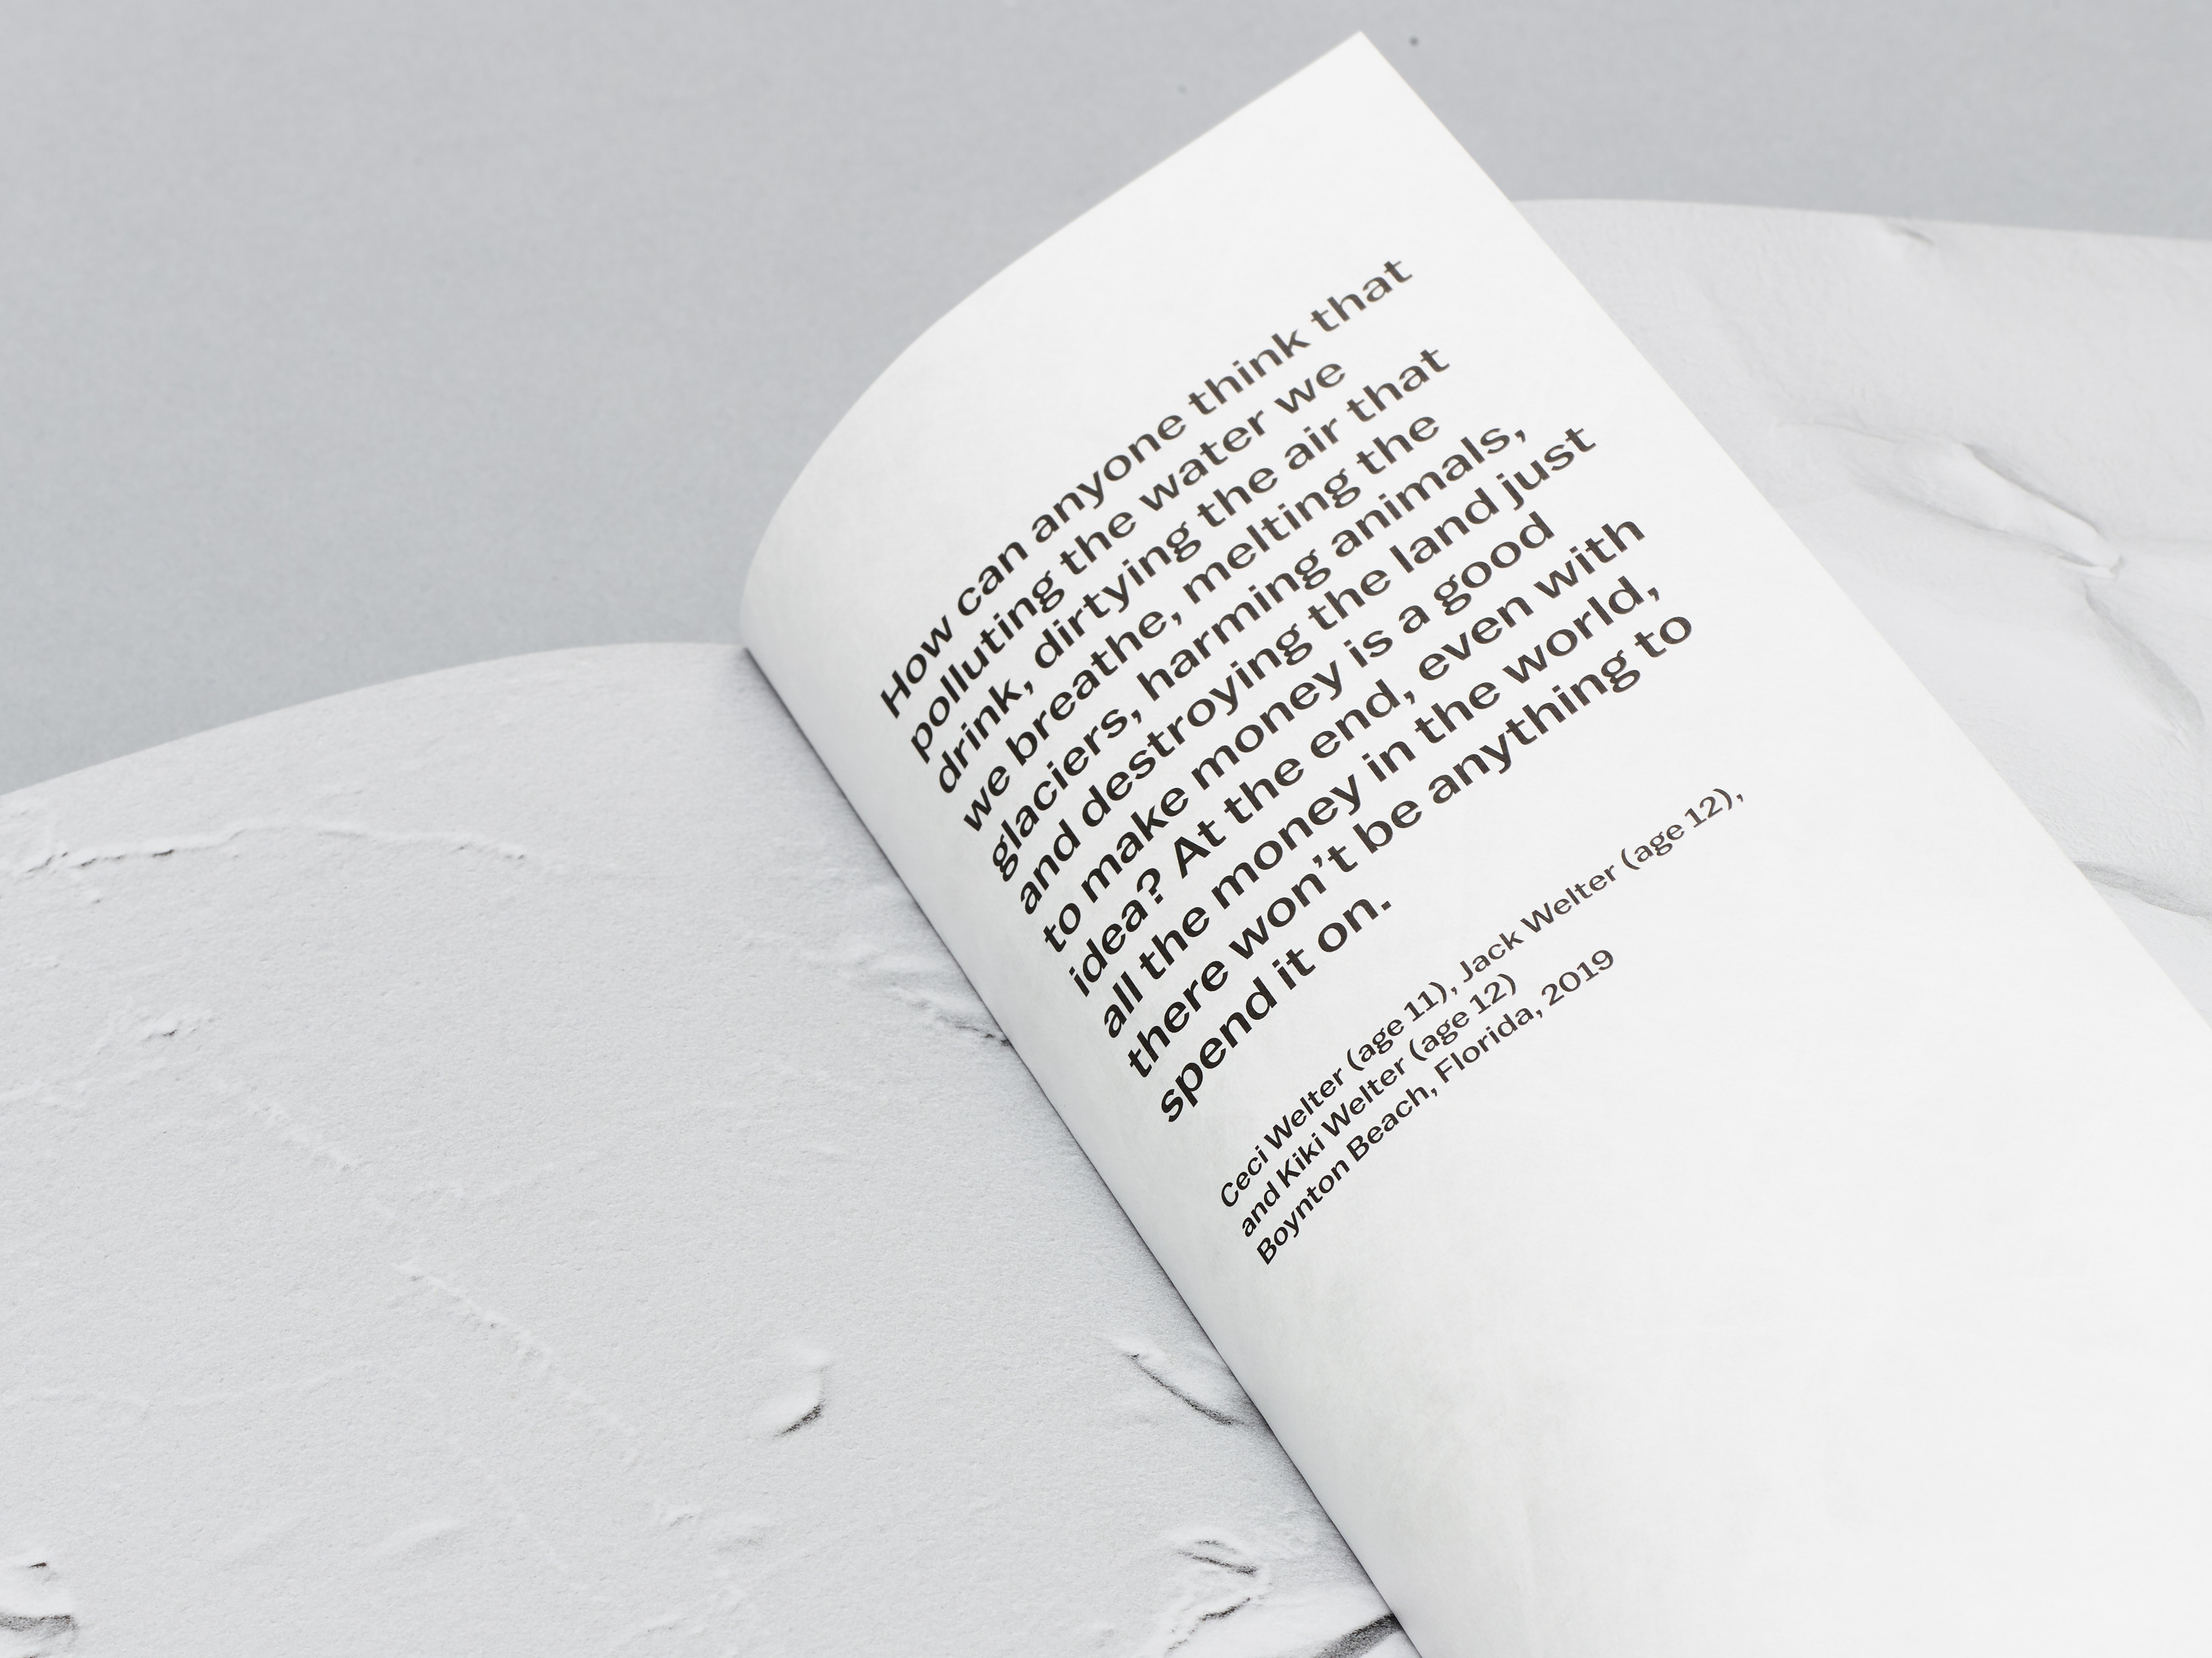 How can anyone think that
polluting the water we
drink, dirtying the air that
we breathe, melting the
glaciers, harming animals,
and destroying the land just
to make money is a good
idea? At the end, even with
all the money in the world,
there won’t be anything to
spend it on.
Ceci Welter (age 11), Jack Welter (age 12),
and Kiki Welter (age 12)
Boynton Beach, Florida, 2019